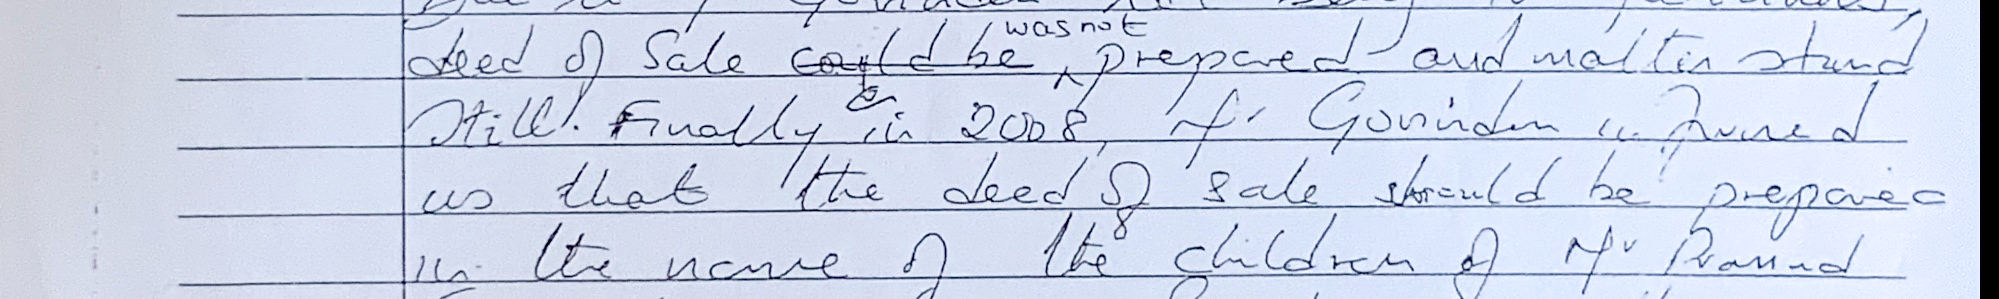 deed of Sale could be was not prepared and matter stand
still. Finally in 2008, Mr Govinden informed
us that the deed of sale should be prepared
in the name of the children of Mr